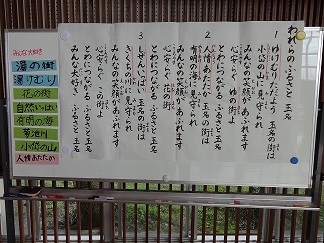 われらの ふるさと 玉名
1 ゆけむりたたよう 玉名の街は
小岱の山に見守られ
みんなの笑顔があふれます
心安らぐ ゆの街よ
とわにつながる ふるさと玉名
2 人情あたたか 玉名の街は
有明の海に見守られ
みんなの笑顔があふれます
心安らぐ 花の街よ
とわにつながる ふるさと玉名
3 しぜんいっぱい 玉名の街は
きくちの川に見守られ
みんなの笑顔があふれます
心安らぐ この街よ
とわにつながる ふるさと玉名
みんな大好き ふるさと玉名
みんな大好き
湯の街
湯けむり
花の街
自然いっぱい
有明の海
菊池川
小岱の山
人情あたたか